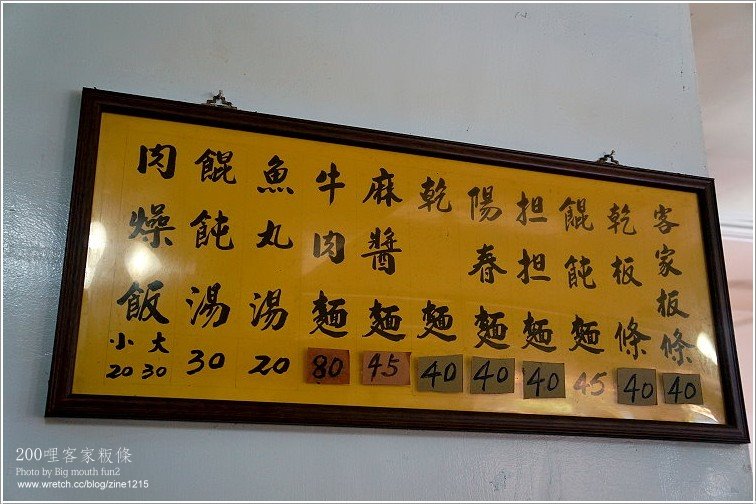 客家板條 40
乾板條 40
餛飩麵 45
担担麵 40
陽春麵 40
乾麵 40
麻醬麵 45
牛肉麵 80
魚丸湯 20
餛飩湯 30
肉燥飯 大30 小20
200哩客家粄條
Photo by Big mouth fun2
www.wretch.cc/blog/zine1215